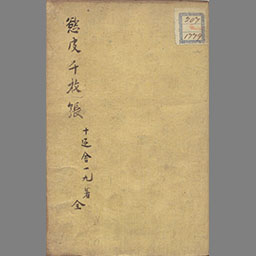 慾皮千枚張
十返舎一九著
全